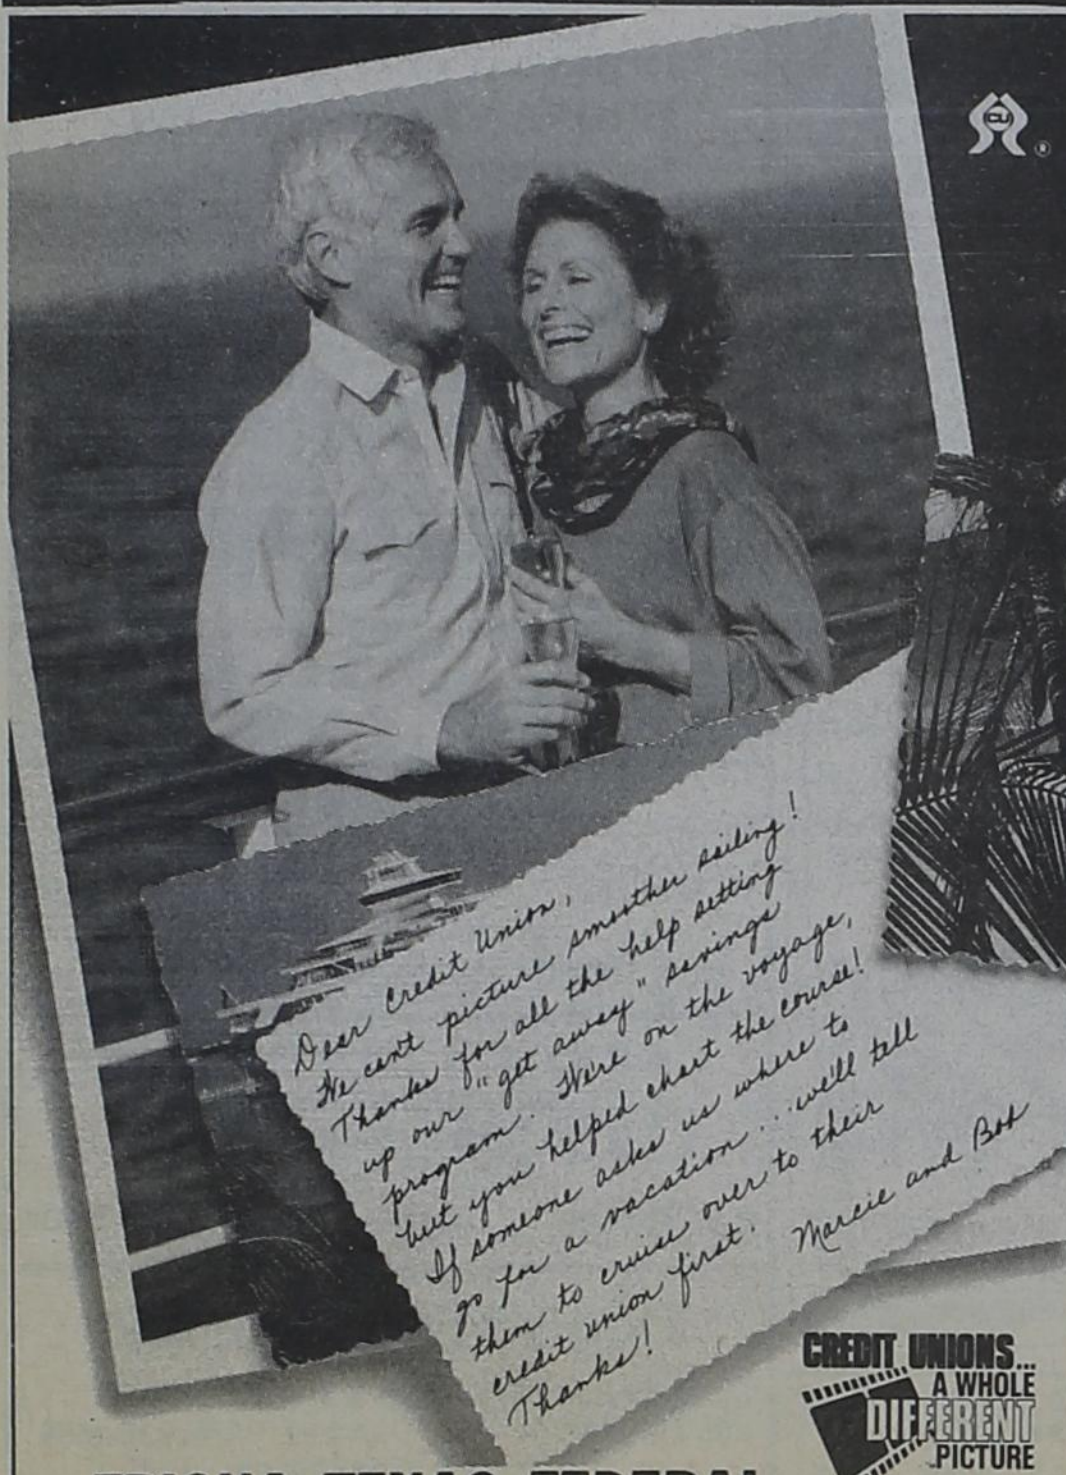 CU
®
Dear Credit Union,
We can't picture smoother sailing!
Thanks for all the help setting
up our "get away" savings
program. We're on the voyage,
but you helped chart the course!
If someone asks us where to
go for a vacation...we'll tell
them to cruise over to their
credit union first.
Thanks!
Marcie and Bob
CREDIT UNIONS...
A WHOLE
DIFFERENT
PICTURE
TEXAS FEDERAL